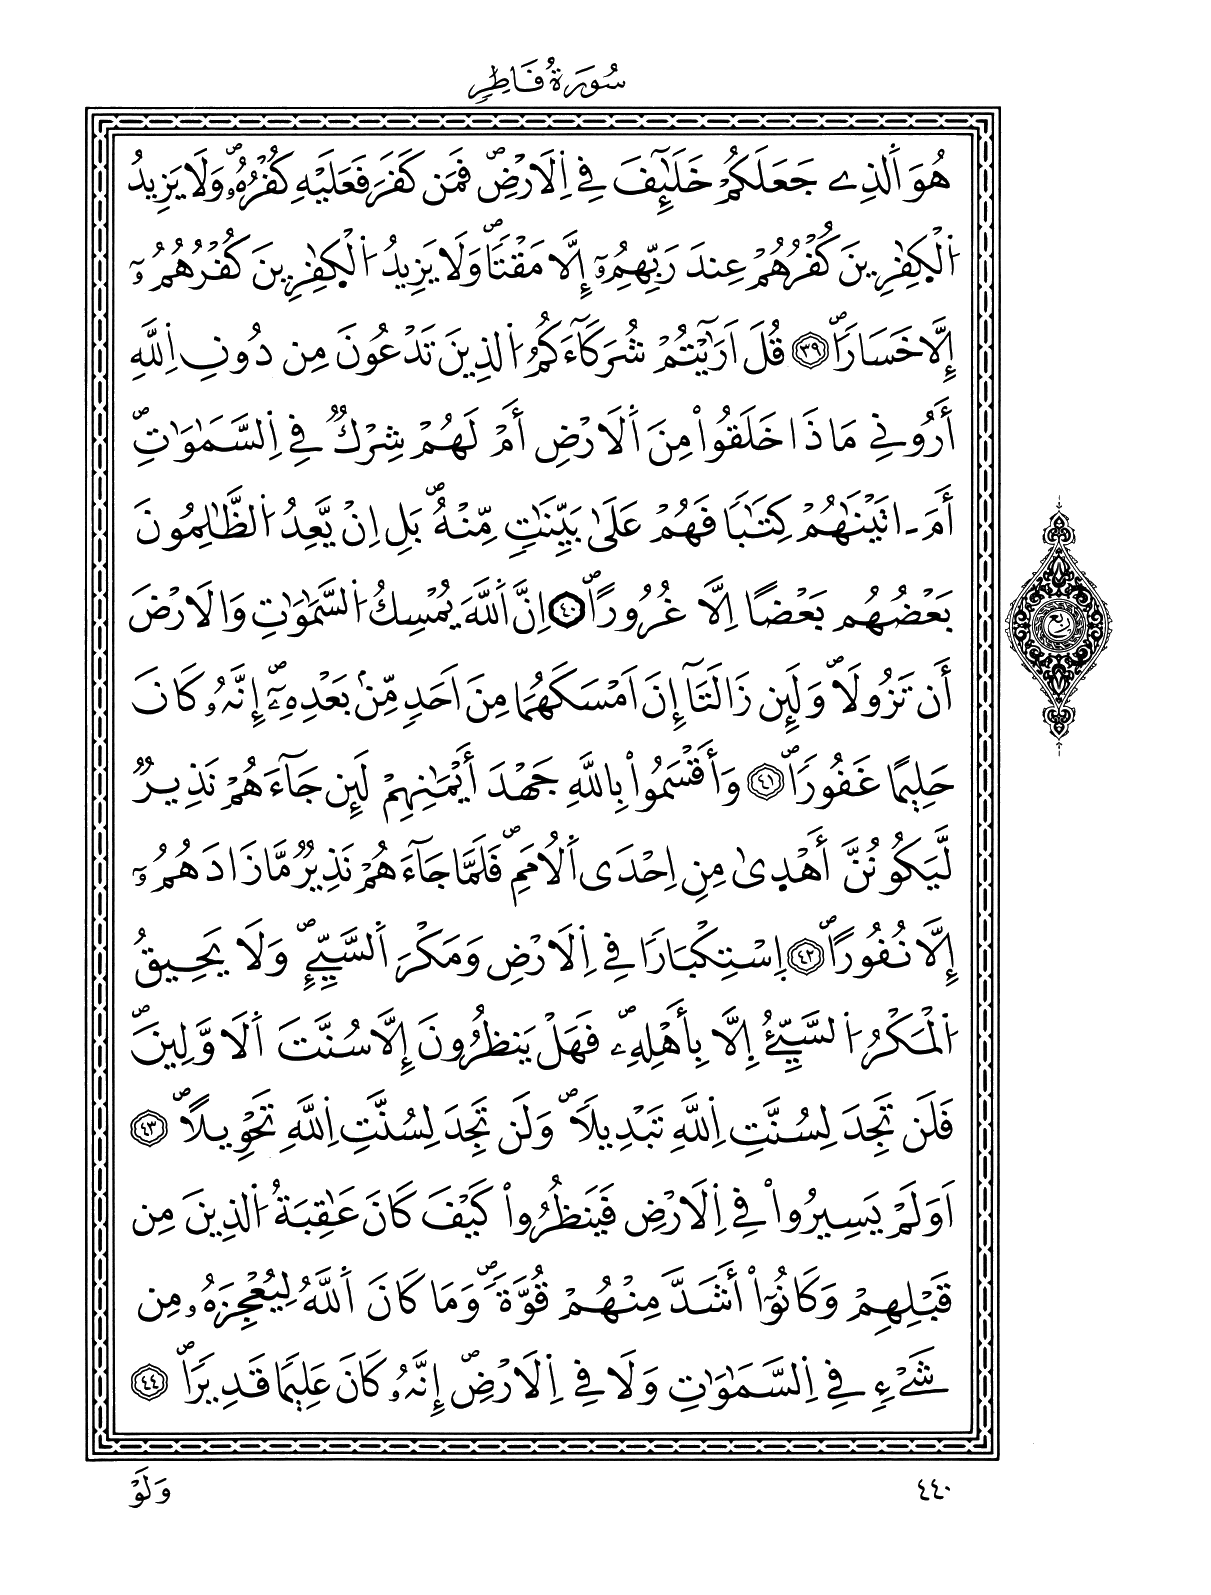 سُورَةُ فَاطِر
هُوَ اَلذِے جَعَلَكُمْ خَلَٰٓئِفَ فِے اِلَارْضِۖ فَمَن كَفَرَ فَعَلَيْهِ كُفْرُهُۥۖ وَلَا يَزِيدُ
اُلْكٰفِرِينَ كُفْرُهُمْ عِندَ رَبِّهِمُۥٓ إِلَّا مَقْتاٗۖ وَلَا يَزِيدُ اُلْكٰفِرِينَ كُفْرُهُمُۥٓ
إِلَّا خَسَاراٗۖ ٣٩ قُلَ اَرَٰٓيْتُمْ شُرَكَآءَكُمُ اُلذِينَ تَدْعُونَ مِن دُونِ اِللَّهِ
أَرُونِے مَاذَا خَلَقُواْ مِنَ اَلَارْضِ أَمْ لَهُمْ شِرْكٞ فِے اِلسَّمَٰوَٰتِۖ
أَمَ ـاتَيْنَٰهُمْ كِتَٰباٗ فَهُمْ عَلَىٰ بَيِّنَٰتٖ مِّنْهُۖ بَلِ اِنْ يَّعِدُ اُلظَّٰلِمُونَ
بَعْضُهُم بَعْضًا اِلَّا غُرُوراًۖ ٤٠ اِنَّ اَللَّهَ يُمْسِكُ اُلسَّمَٰوَٰتِ وَالَارْضَ
أَن تَزُولَاۖ وَلَئِن زَالَتَآ إِنَ اَمْسَكَهُمَا مِنَ اَحَدٖ مِّنۢ بَعْدِهِۦٓۖ إِنَّهُۥ كَانَ
حَلِيماً غَفُوراٗۖ ٤١ وَأَقْسَمُواْ بِاللَّهِ جَهْدَ أَيْمَٰنِهِمْ لَئِن جَآءَهُمْ نَذِيرٞ
لَّيَكُونُنَّ أَهْدِىٰ مِنِ اِحْدَى اَلُامَمِۖ فَلَمَّا جَآءَهُمْ نَذِيرٞ مَّا زَادَهُمُۥٓ
إِلَّا نُفُوراًۖ ٤٢ اِسْتِكْبَاراٗ فِے اِلَارْضِ وَمَكْرَ اَلسَّيِّےِٕۖ وَلَا يَحِيقُ
اُلْمَكْرُ اُلسَّيِّئُ إِلَّا بِأَهْلِهِۦۖ فَهَلْ يَنظُرُونَ إِلَّا سُنَّتَ اَلَاوَّلِينَۖ
فَلَن تَجِدَ لِسُنَّتِ اِللَّهِ تَبْدِيلاٗۖ وَلَن تَجِدَ لِسُنَّتِ اِللَّهِ تَحْوِيلاًۖ ٤٣
اَوَلَمْ يَسِيرُواْ فِے اِلَارْضِ فَيَنظُرُواْ كَيْفَ كَانَ عَٰقِبَةُ اُلذِينَ مِن
قَبْلِهِمْ وَكَانُوٓاْ أَشَدَّ مِنْهُمْ قُوَّةٗۖ وَمَا كَانَ اَللَّهُ لِيُعْجِزَهُۥ مِن
شَےْءٖ فِے اِلسَّمَٰوَٰتِ وَلَا فِے اِلَارْضِۖ إِنَّهُۥ كَانَ عَلِيماٗ قَدِيراٗۖ ٤٤
ربع
٤٤٠
وَلَوْ